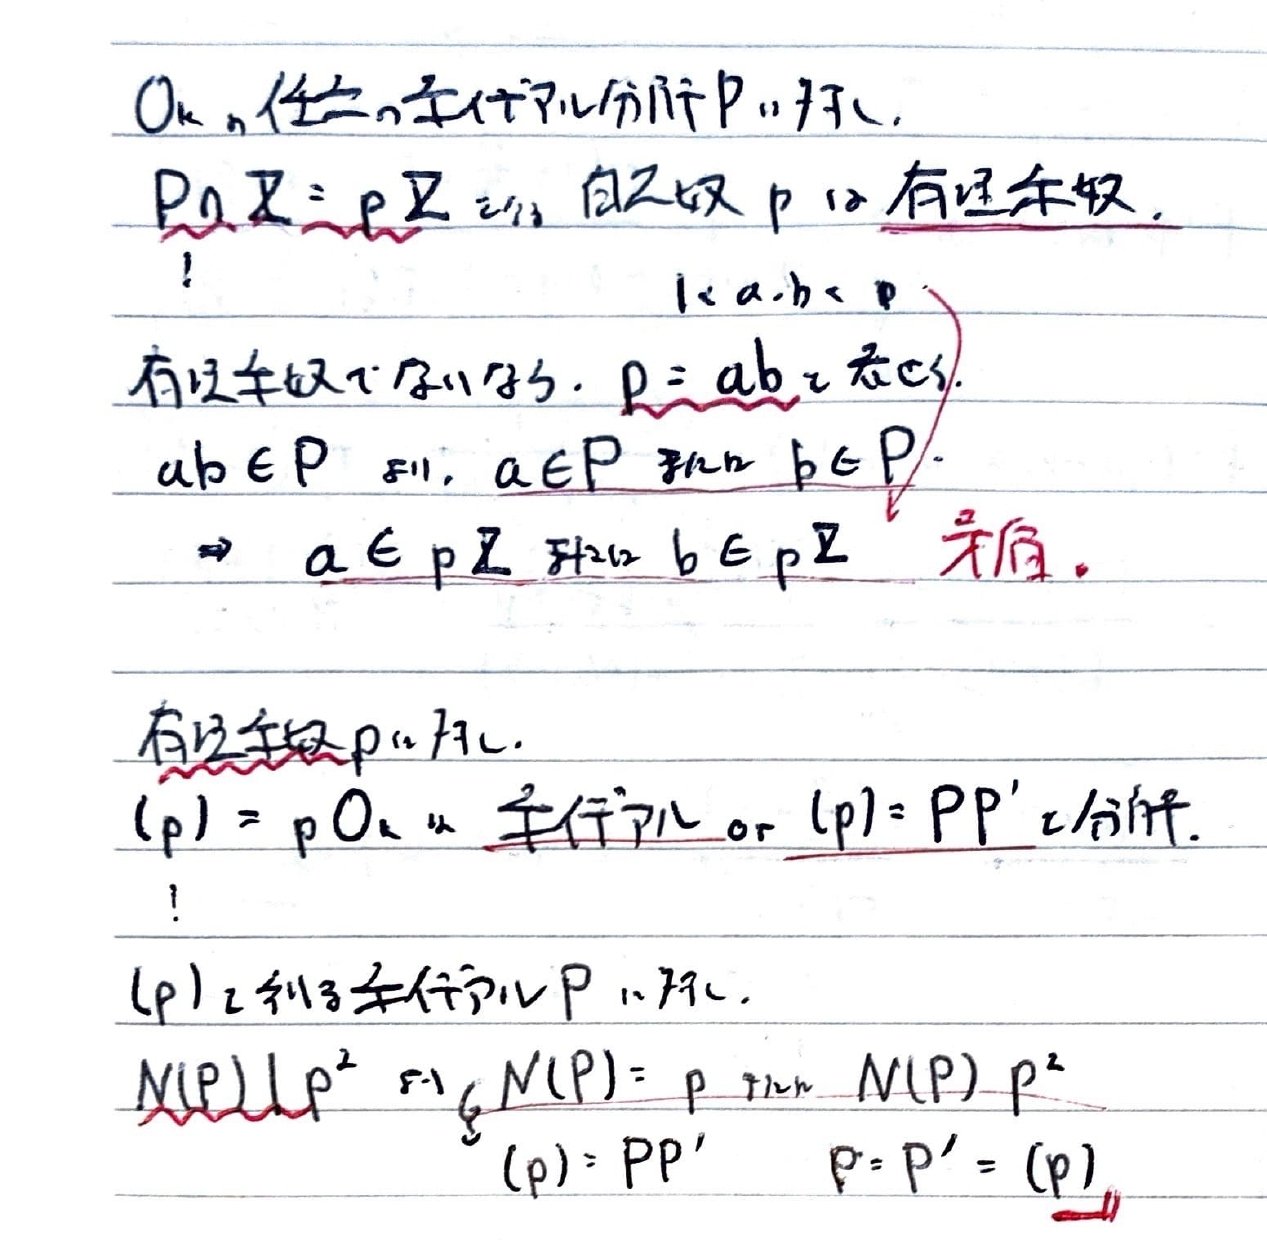 Oₖの任意の素イデアル分解Pに対し.
P∩ℤ = pℤ となる 自然数 p は 有理素数.
!
1 < a, b < p
有理素数でないなら. p = ab と表せる.
ab ∈ P より. a ∈ P または b ∈ P.
⇒ a ∈ pℤ または b ∈ pℤ 矛盾.
有理素数pに対し.
(p) = pOₖ は 素イデアル or (p) = PP′ と分解.
!
(p)を割る素イデアルPに対し.
N(P) | p² より N(P) = p または N(P) p²
(p) = PP′ P = P′ = (p)